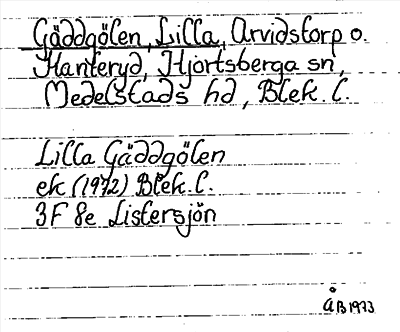 Gäddgölen, Lilla, Arvidstorp o.
Hanteryd, Hjortsberga sn,
Medelstads hd, Blek. l.
Lilla Gäddgölen
ek (1972) Blek. l.
3F 8e Listersjön
ÅB 1973